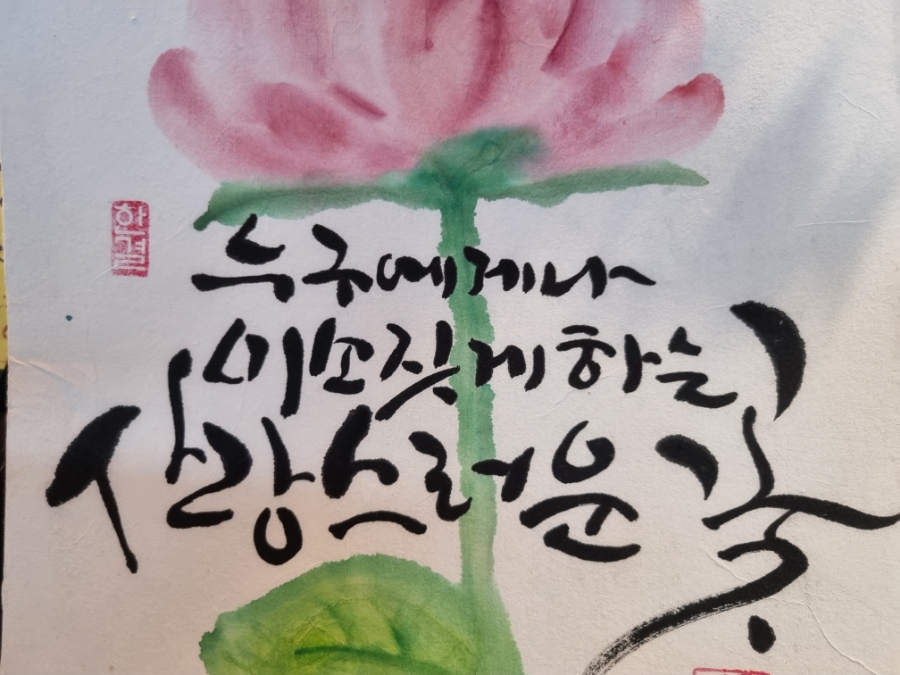 한결
누구에게나
미소짓게 하는
사랑스러운 꽃.